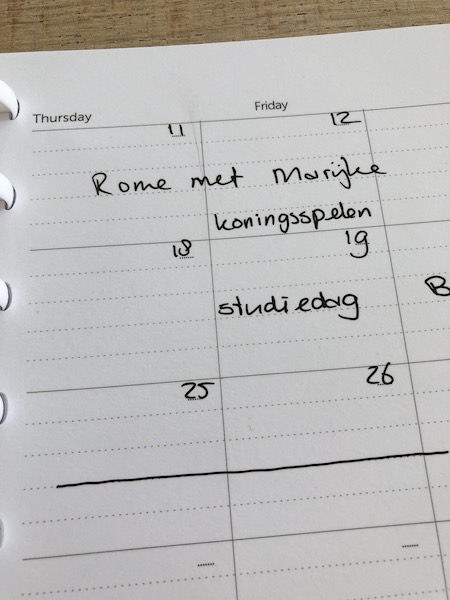 Thursday Friday
11 12
Rome met Marijke
koningsspelen
18 19
studiedag B
25 26